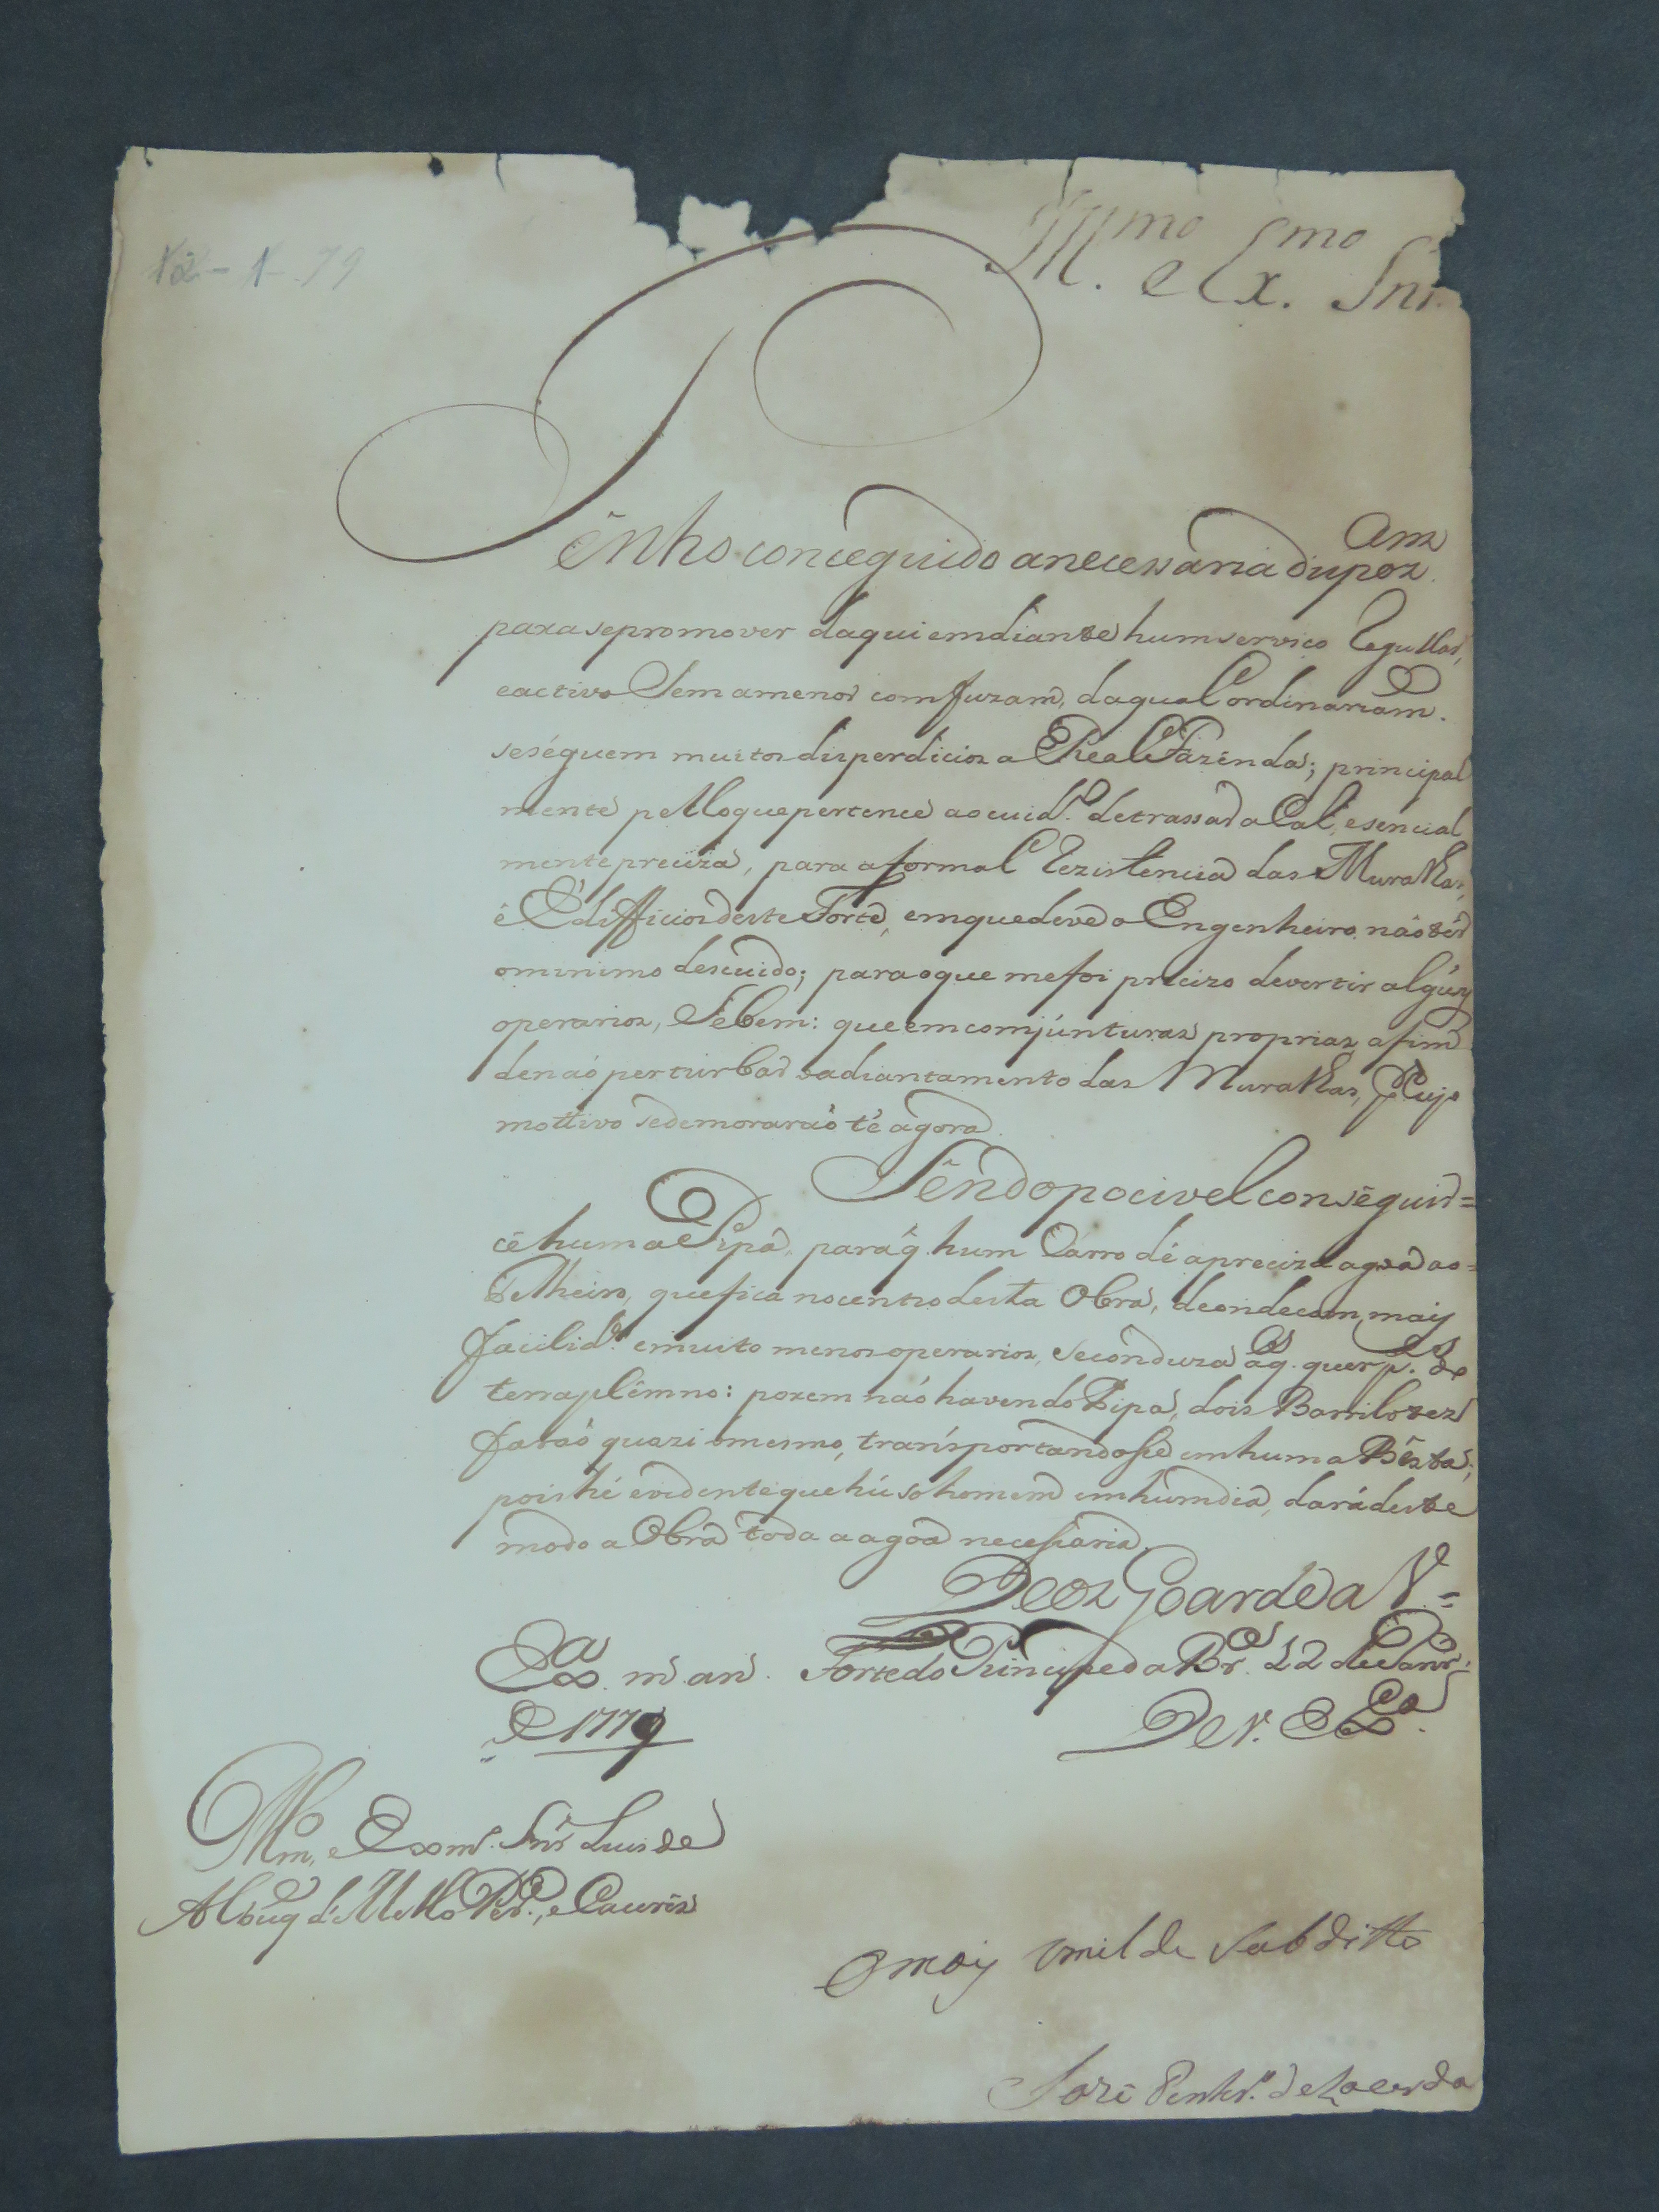 12-1-79
Ill.mo e Ex.mo Snr.
Tênho conceguido a necessaria dispoz.am
para se promover daqui em diante hum servico regullar,
e activo Sem a menor comfuzam, da qual ordinariam.e
se séguem muitos disperdicios a Real Fazênda; principal
mente pello que pertence ao cuid.o de trassar a Cal, esencial
mente preciza, para a formal rezistencia das Muralhas,
ê Edifficios deste Forte, em que deve o Engenheiro não têr
o minimo descuido; para o que me foi precizo devertir algúns
operarios, Se bem: que em comjúnturas proprias a fim
de naó perturbar o adiantamento das Muralhas, p.r Cujo
mottivo se demoraraó té agora.
Sêndo pocivel conséguir=
cê huma Pipa, para q hum Carro dê a preciza agoa ao=
Telheiro, que fica no centro desta Obra, de onde com mais
facilid.e e muito menos operarios, se condusa a q. quer p.te do
terraplêmno: porem naó havendo Pipa, dois Barris ,
faraó quazi o mesmo, transportandosse em huma Bêsta;
pois hé evidente que hú só homem em hum dia, dará deste
modo a Obra toda a agoa necessaria.
Deos Goarde a V.=
Ex.a m. an. Forte do Principe da Br.a 12 de Janr.o
de 1779
De V. Ex.a
Illm.o e Exm.o Snr Luis de
Albuq. d' Mello Per.a, e Caceres
O mais Umilde Subditto
Jozé Pinhr.o de Lacerda